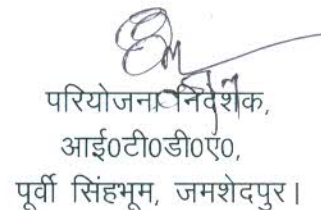 परियोजना निदेशक,
आई0टी0डी0ए0,
पूर्वी सिंहभूम, जमशेदपुर।